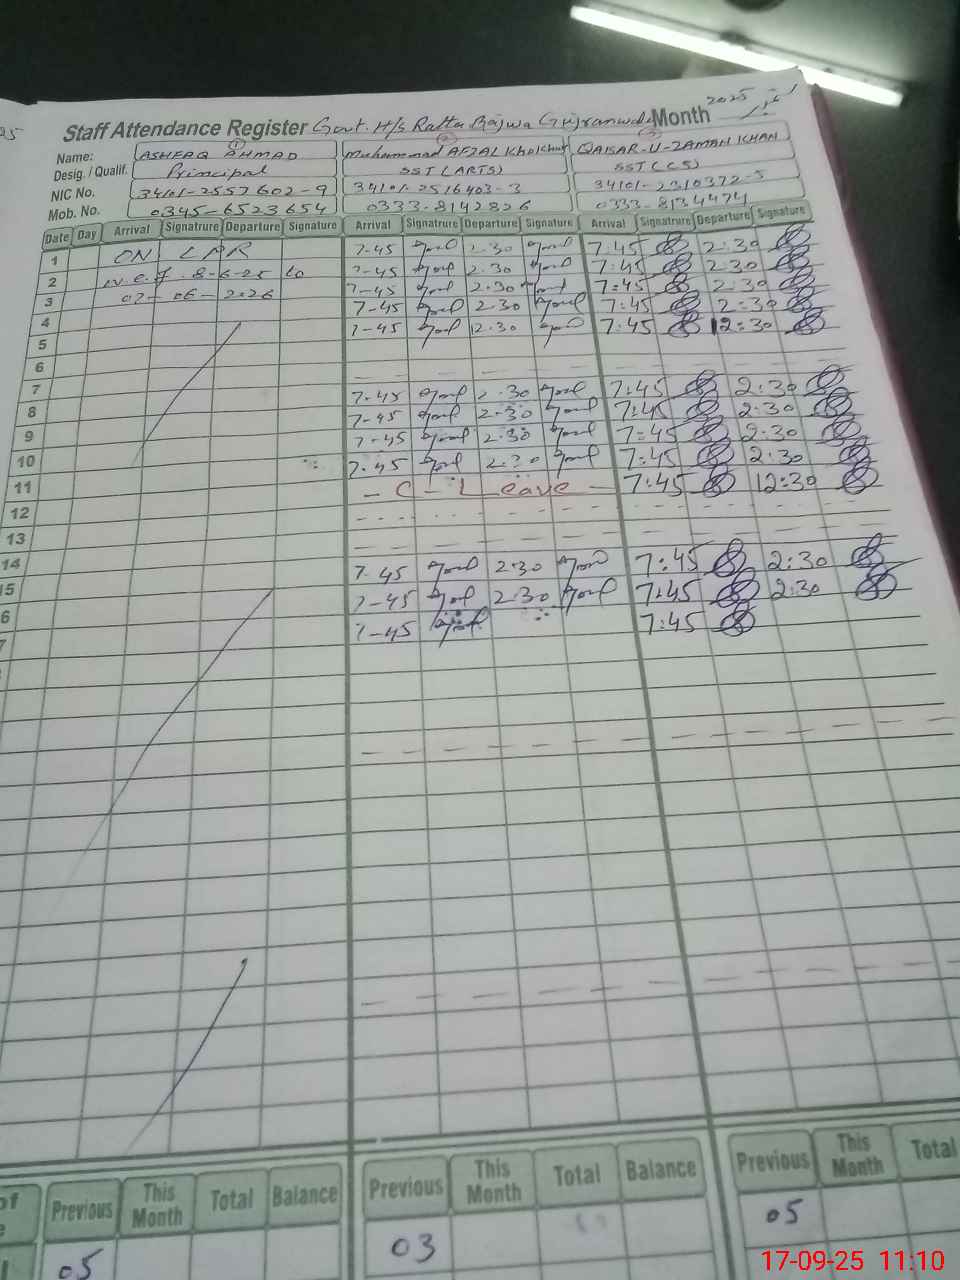 Staff Attendance Register Govt. H/s Ratta Bajwa Gujranwala Month ستمبر 2025
① ② ③
Name: ASHFAQ AHMAD Muhammad AFZAL Khokhar QAISAR-U-ZAMAN KHAN
Desig. / Qualif. Principal SST (ARTS) SST (CS)
NIC No. 34101-2557602-9 34101-2516403-3 34101-2310372-5
Mob. No. 0345-6523654 0333-8142826 0333-8134474
Date Day Arrival Signatrure Departure Signature Arrival Signatrure Departure Signature Arrival Signatrure Departure Signature
1 ON LPR 7-45 2.30 7:45 2:30
2 w.e.f. 8-6-25 to 7-45 2.30 7:45 2:30
3 07-06-2026 7-45 2.30 7:45 2:30
4 7-45 2.30 7:45 2:30
5 7-45 12.30 7:45 12:30
6
7
8 7-45 2.30 7:45 2:30
9 7-45 2.30 7:45 2:30
10 7-45 2.30 7:45 2:30
11 7.45 2.30 7:45 2:30
12 - C - Leave - 7:45 12:30
13
14
15 7-45 2.30 7:45 2:30
6 7-45 2.30 7:45 2:30
7 7-45 7:45
Previous This Month Total Balance Previous This Month Total Balance Previous This Month Total
05 03 05
17-09-25 11:10